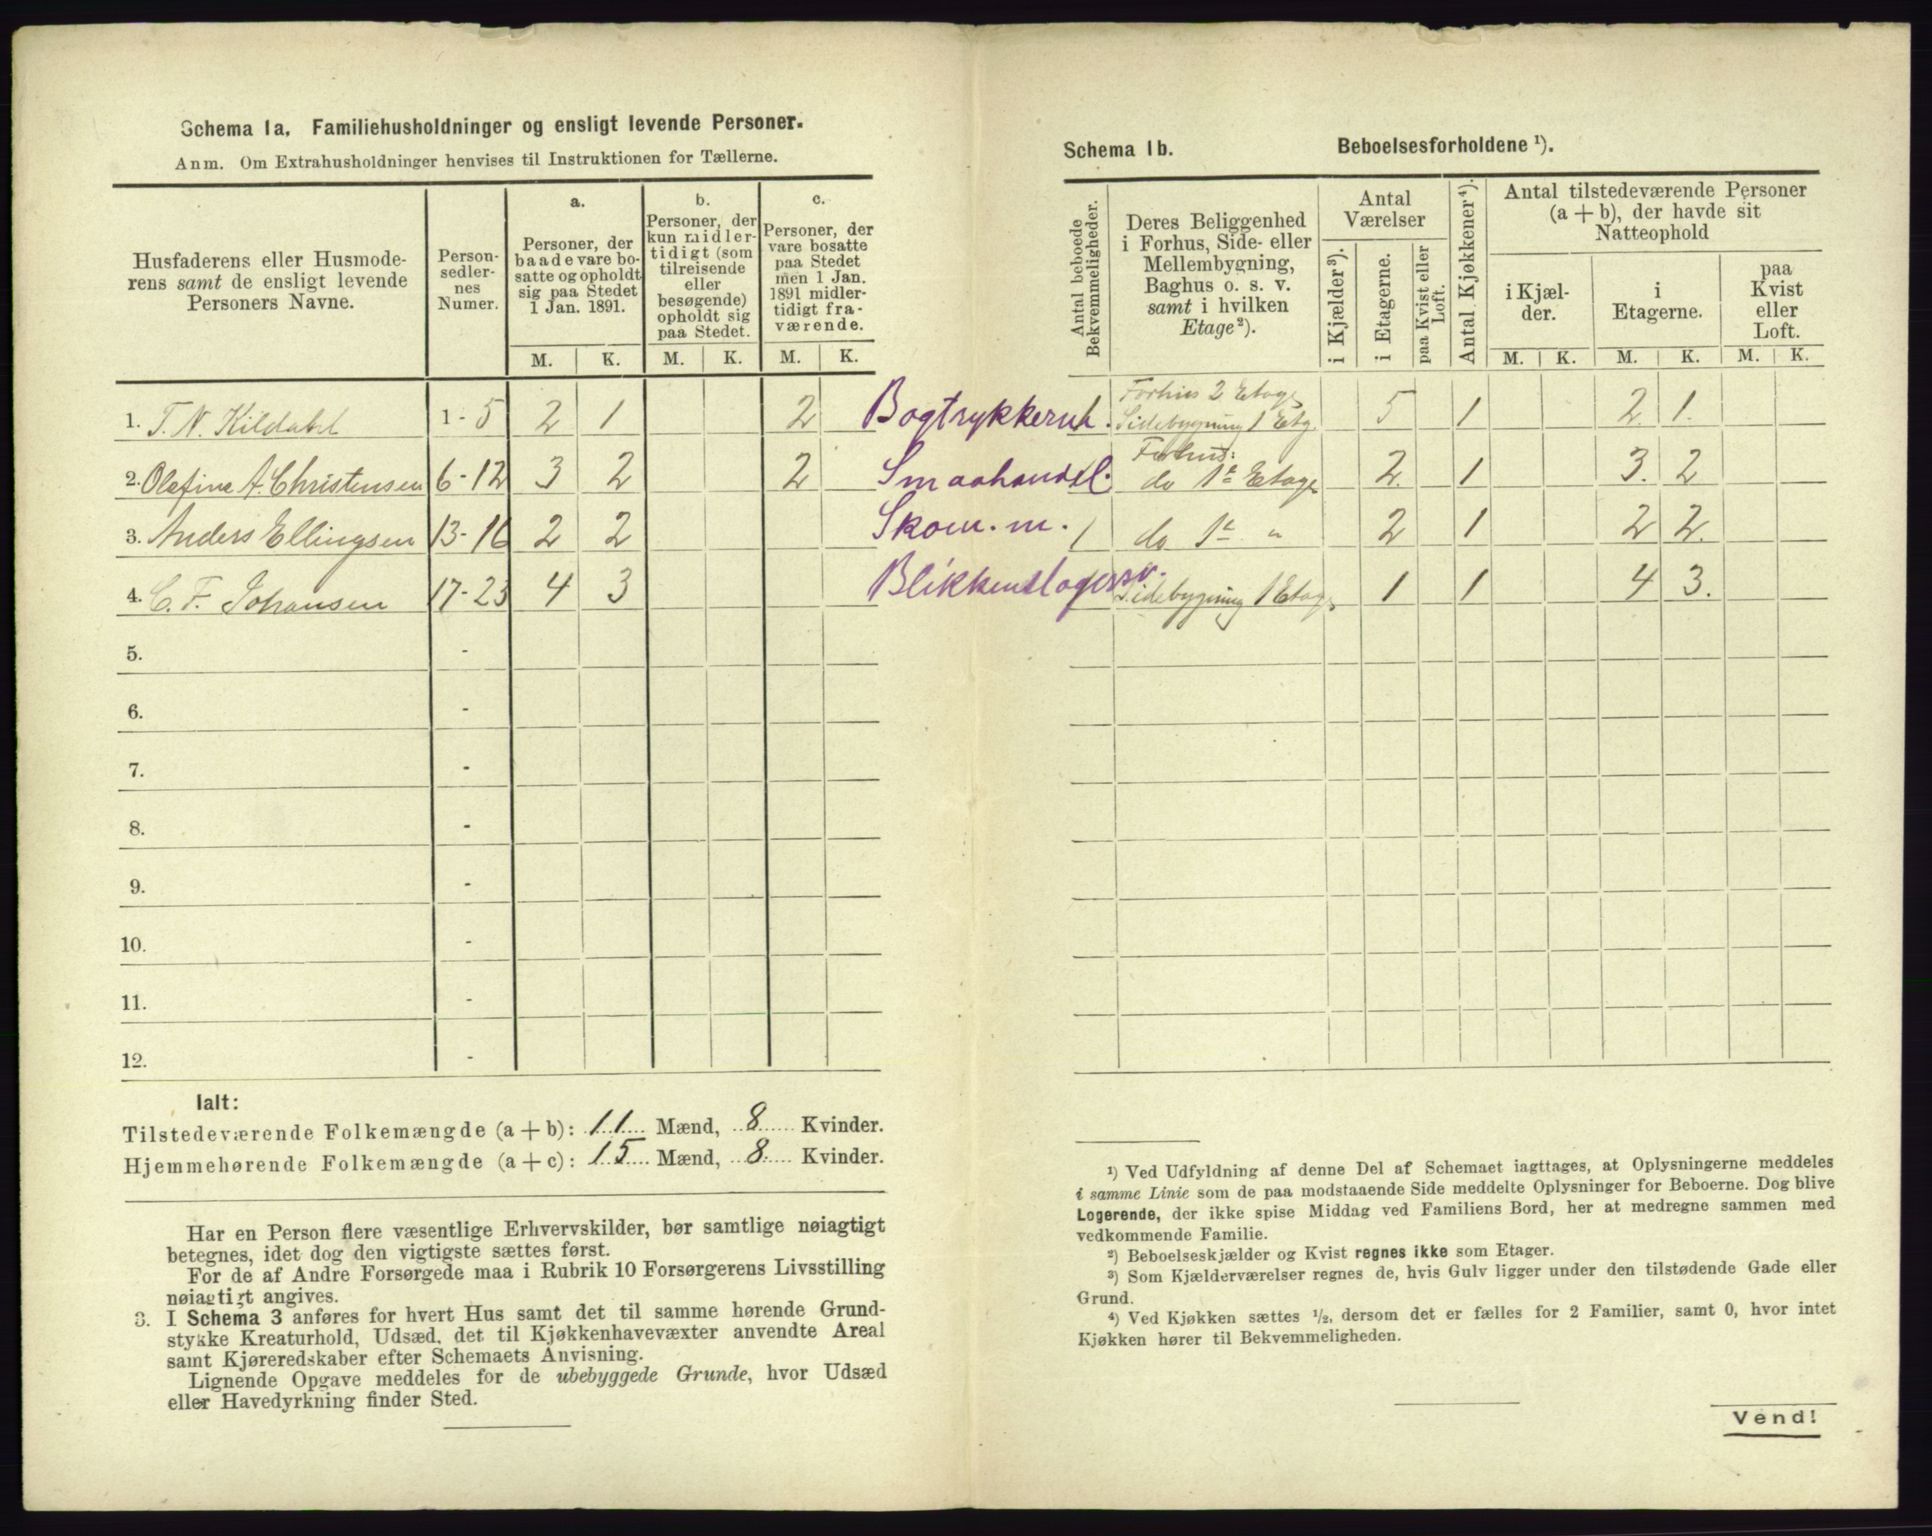 Schema 1a. Familiehusholdninger og ensligt levende Personer.
Anm. Om Extrahusholdninger henvises til Instruktionen for Tællerne.
Husfaderens eller Husmode-
rens samt de ensligt levende
Personers Navne.
Person-
sedler-
nes
Numer.
a.
Personer, der
baade vare bo-
satte og opholdt
sig paa Stedet
1 Jan. 1891.
b.
Personer, der
kun midler-
tidigt (som
tilreisende
eller
besøgende)
opholdt sig
paa Stedet.
c.
Personer, der
vare bosatte
paa Stedet
men 1 Jan.
1891 midler-
tidigt fra-
værende.
M. K. M. K. M. K.
1. T. N. Kildahl 1-5 2 1 2
2. Olefine A. Christensen 6-12 3 2 2
3. Anders Ellingsen 13-16 2 2
4. C. F. Johansen 17-23 4 3
5. -
6. -
7. -
8. -
9. -
10. -
11. -
12. -
Ialt:
Tilstedeværende Folkemængde (a + b): 11 Mænd, 8 Kvinder.
Hjemmehørende Folkemængde (a + c): 15 Mænd, 8 Kvinder.
Har en Person flere væsentlige Erhvervskilder, bør samtlige nøiagtigt
betegnes, idet dog den vigtigste sættes først.
For de af Andre Forsørgede maa i Rubrik 10 Forsørgerens Livsstilling
nøiagtigt angives.
3. I Schema 3 anføres for hvert Hus samt det til samme hørende Grund-
stykke Kreaturhold, Udsæd, det til Kjøkkenhavevæxter anvendte Areal
samt Kjøreredskaber efter Schemaets Anvisning.
Lignende Opgave meddeles for de ubebyggede Grunde, hvor Udsæd
eller Havedyrkning finder Sted.
Schema 1b. Beboelsesforholdene ¹).
Antal beboede
Bekvemmeligheder.
Deres Beliggenhed
i Forhus, Side- eller
Mellembygning,
Baghus o. s. v.
samt i hvilken
Etage²).
Antal
Værelser
i Kjælder³).
i Etagerne.
paa Kvist eller
Loft.
Antal Kjøkkener⁴).
Antal tilstedeværende Personer
(a + b), der havde sit
Natteophold
i Kjæl-
der.
i
Etagerne.
paa
Kvist
eller
Loft.
M. K. M. K. M. K.
Forhus 2 Etage
Bogtrykkeru. 1 Sidebygning 1 Etg. 5 1 2. 1.
Forhus:
Smaahandel. do 1ste Etage 2 1 3. 2
Skom. m. 1 do 1ste " 2 1 2 2.
Blikkenslagersv. Sidebygning 1 Etage 1 1 4 3.
¹) Ved Udfyldning af denne Del af Schemaet iagttages, at Oplysningerne meddeles
i samme Linie som de paa modstaaende Side meddelte Oplysninger for Beboerne. Dog blive
Logerende, der ikke spise Middag ved Familiens Bord, her at medregne sammen med
vedkommende Familie.
²) Beboelseskjælder og Kvist regnes ikke som Etager.
³) Som Kjælderværelser regnes de, hvis Gulv ligger under den tilstødende Gade eller
Grund.
⁴) Ved Kjøkken sættes ½, dersom det er fælles for 2 Familier, samt 0, hvor intet
Kjøkken hører til Bekvemmeligheden.
Vend!